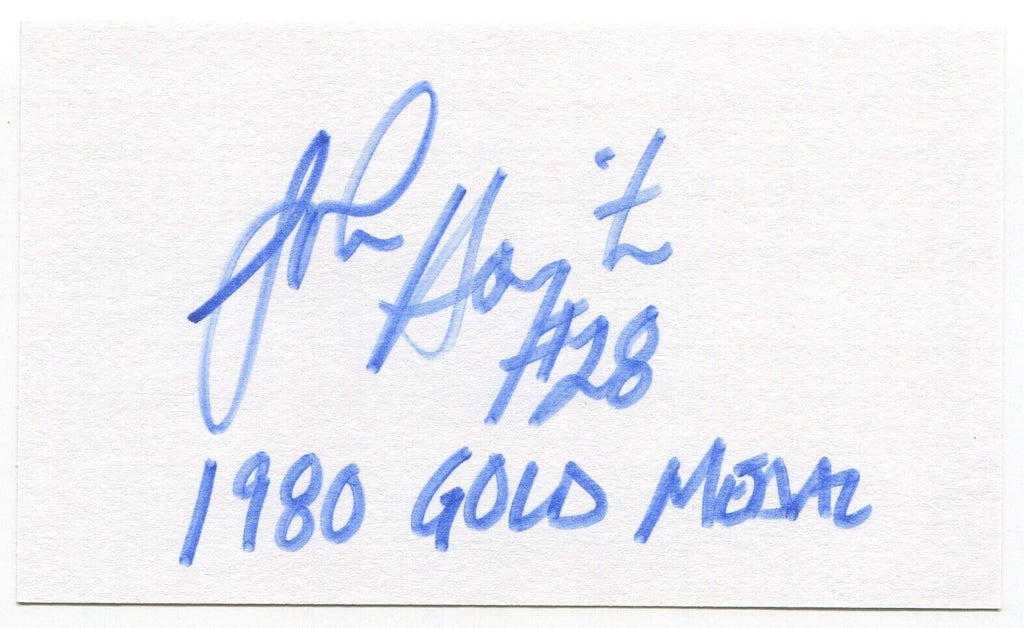 John Harrington
#28
1980 GOLD MEDAL